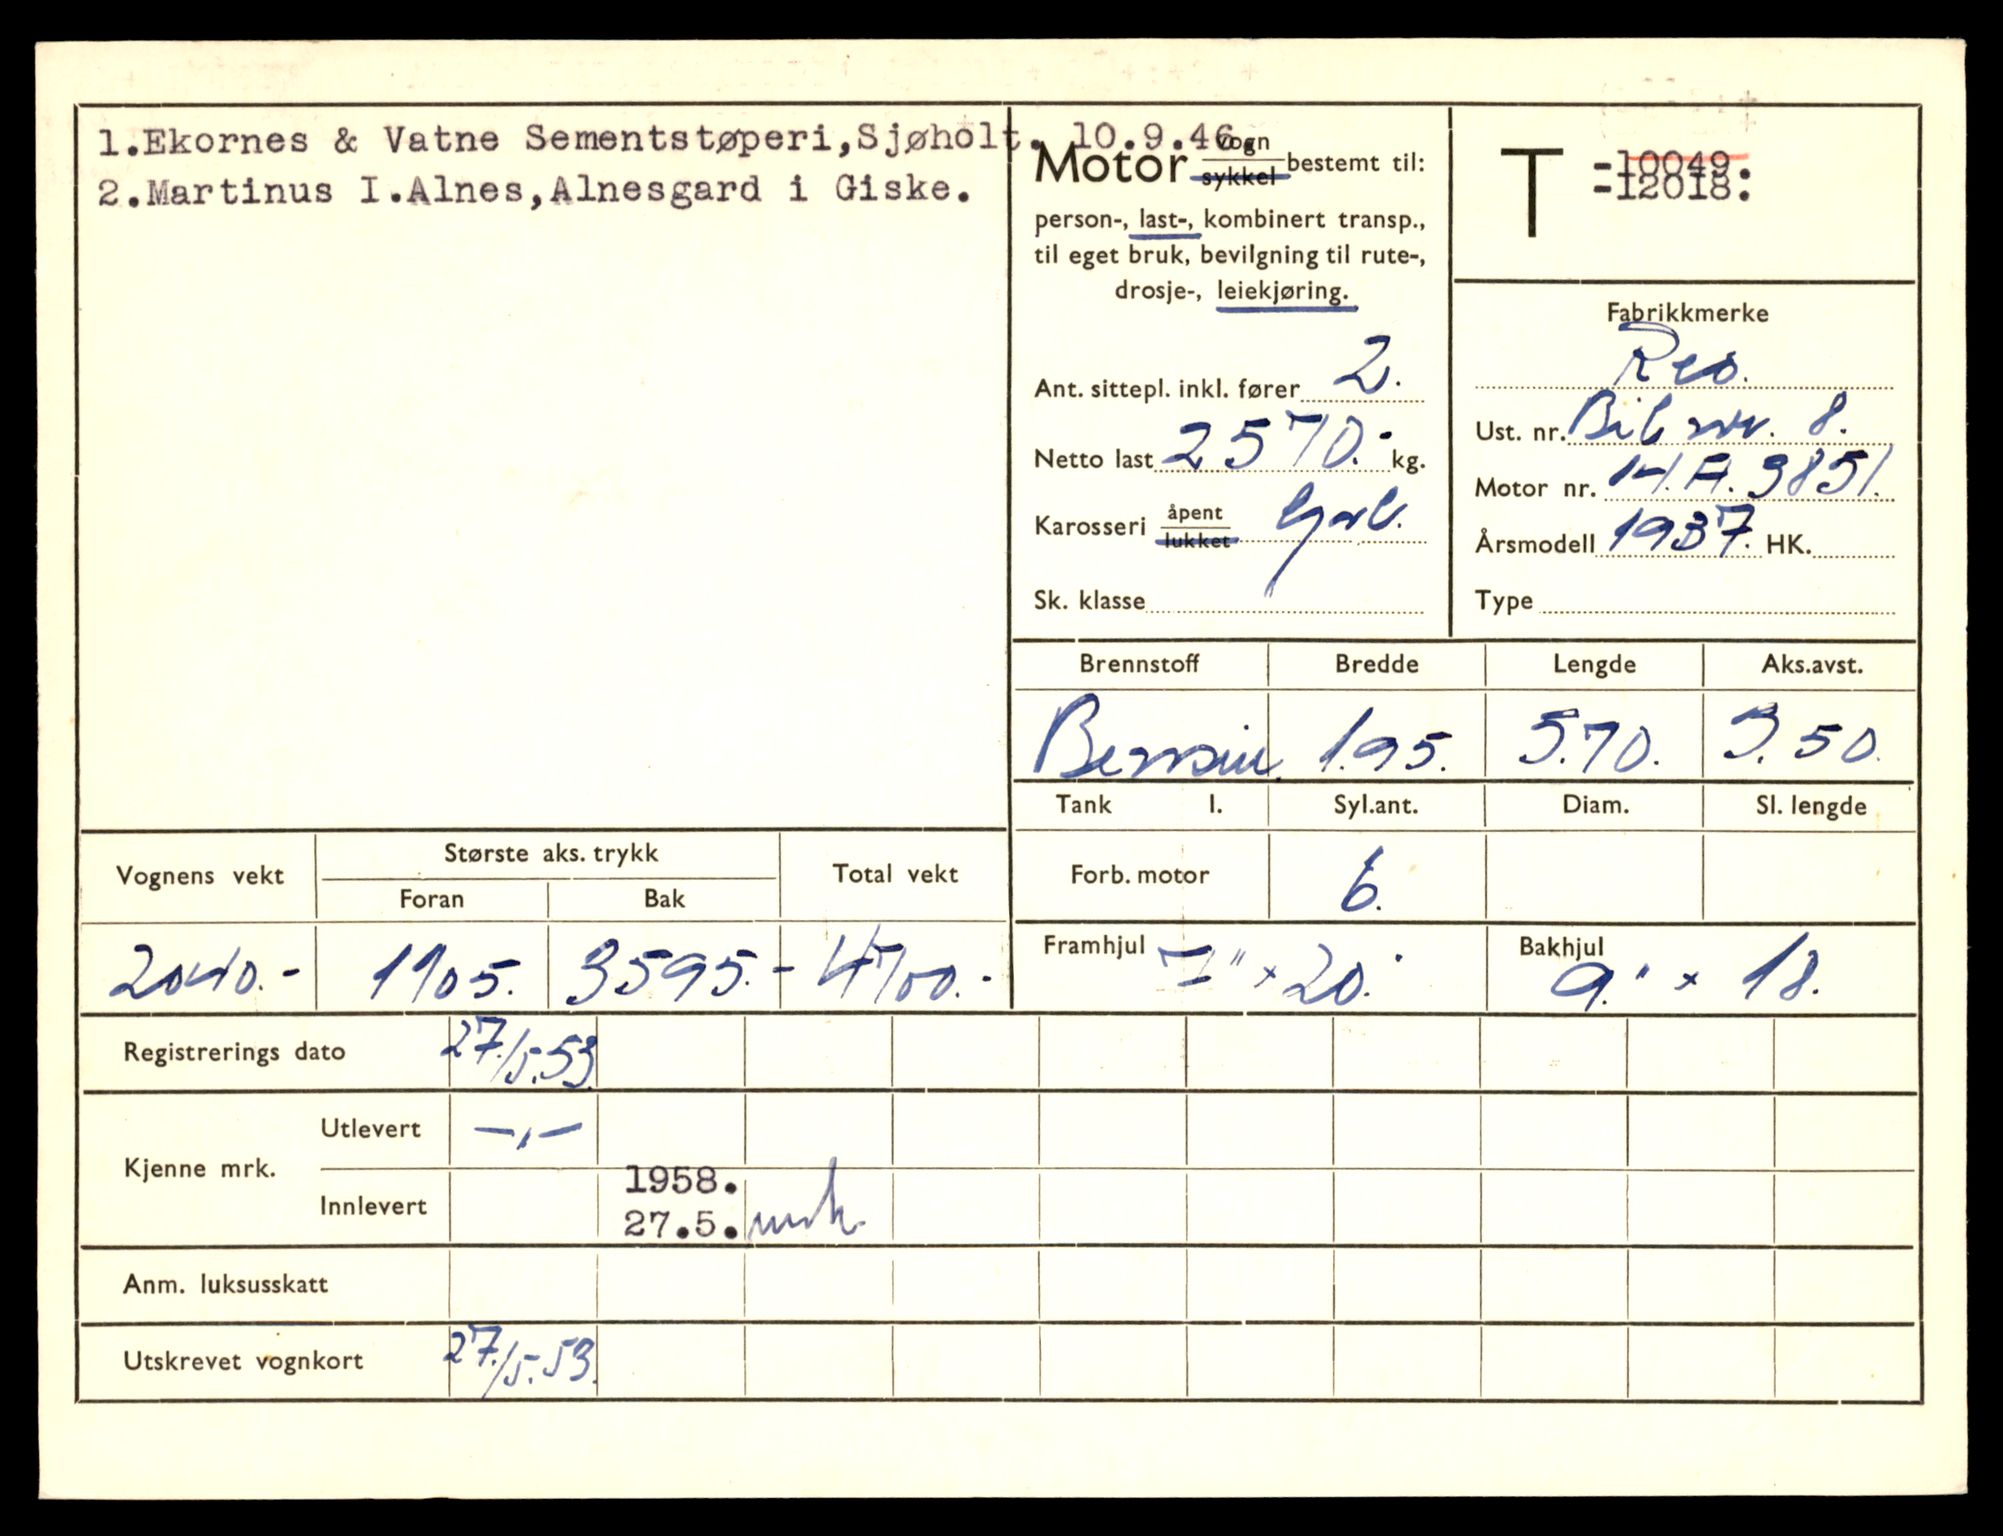 1.Ekornes & Vatne Sementstøperi,Sjøholt. 10.9.46.
2.Martinus I.Alnes,Alnesgard i Giske.
Motor vogn sykkel bestemt til:
person-, last-, kombinert transp.,
til eget bruk, bevilgning til rute-,
drosje-, leiekjøring.
Ant. sittepl. inkl. fører 2.
Netto last 2570.- kg.
Karosseri åpent lukket
Sk. klasse
T -10049.
-12018.
Fabrikkmerke
Reo.
Ust. nr. Bil nr. 8.
Motor nr. 14.A.3851.
Årsmodell 1937. HK.
Type
Brennstoff Bredde Lengde Aks.avst.
Bensin. 1.95. 5.70. 3.50.
Tank l. Syl.ant. Diam. Sl. lengde
Forb. motor 6.
Framhjul 7" x 20. Bakhjul 9." x 18.
Vognens vekt Største aks. trykk Total vekt
Foran Bak
2040.- 1105. 3595.- 4700.-
Registrerings dato 27./5.53.
Kjenne mrk. Utlevert —,,—
Innlevert 1958.
27.5.
Anm. luksusskatt
Utskrevet vognkort 27./5.53.